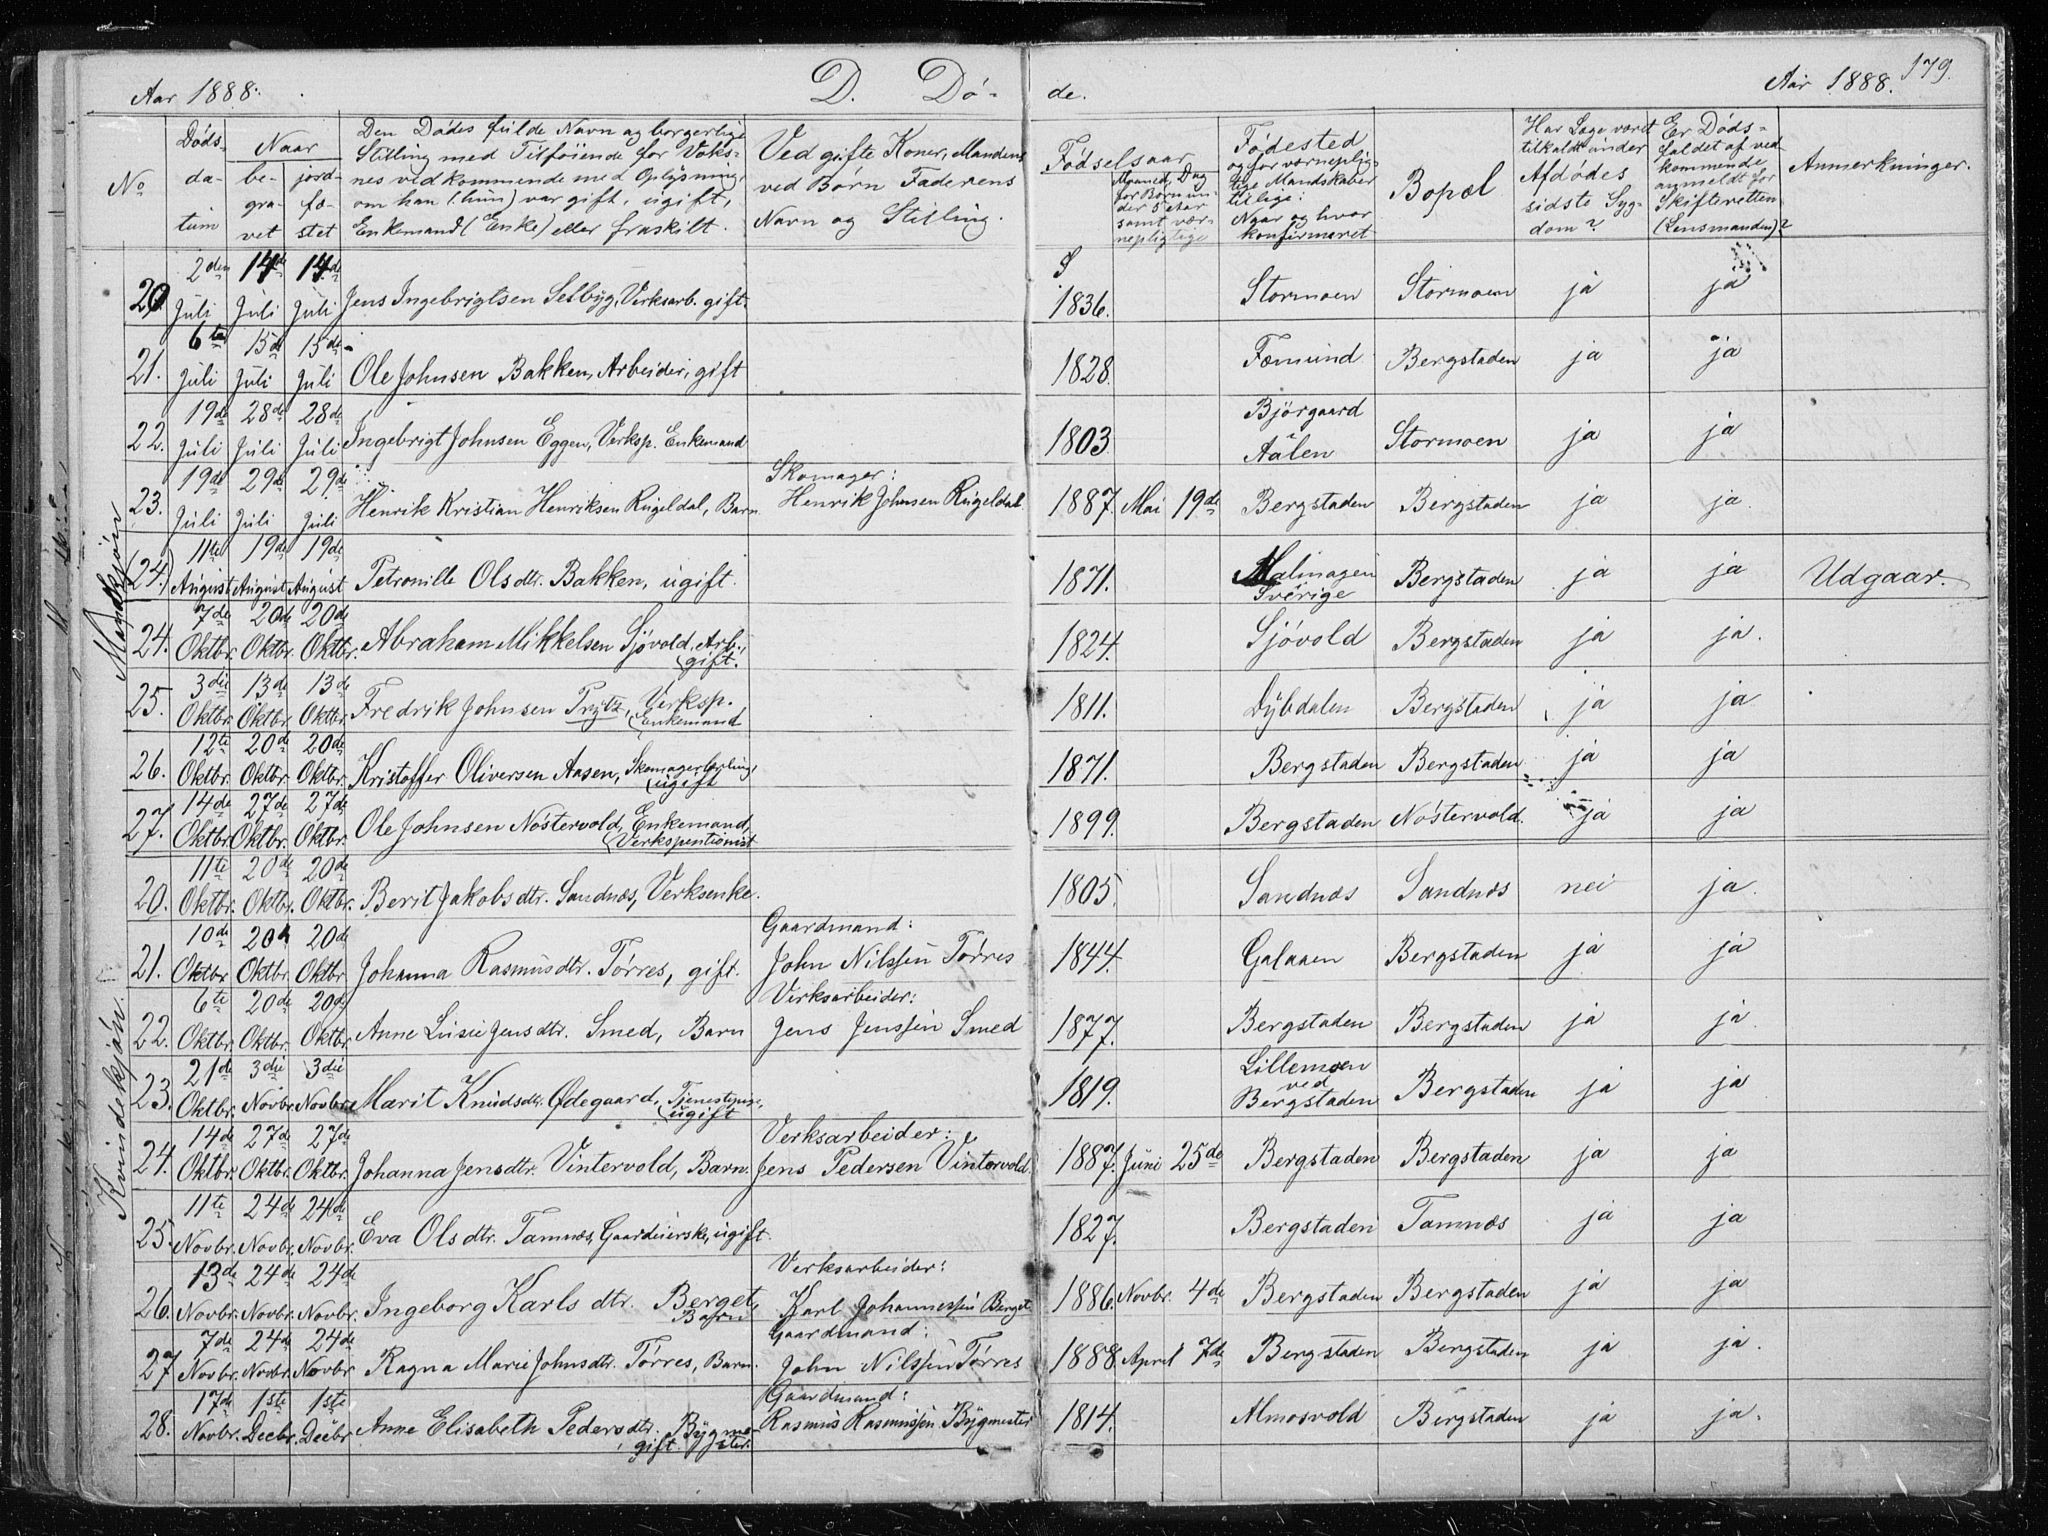 Aar 1888. D. Dö- de. Aar 1888. 179.
No. | Döds-datum | Naar begravet | jordfæstet | Den Dödes fulde Navn og borgerlige Stilling med Tilföiende for Voksnes vedkommende med Oplysning, om han (hun) var gift, ugift, Enkemand (Enke) eller fraskilt. | Ved gifte Koner, Mandens ved Börn Faderens Navn og Stilling. | Födselsaar | Maaned, Dag for Börn under 5 Aar samt værnepligtige | Födested og for værnepligtige Mandskaber tillige: Naar og hvor konfirmeret | Bopæl | Har Læge været tilkaldt under Afdödes sidste Sygdom? | Er Dödsfaldet af vedkommende anmeldt for Skifteretten (Lensmanden)? | Anmerkninger.
Mandkjön
20. 2den Juli 14de Juli 14.de Juli Jens Ingebrigtsen Selbyg, Verksarb. gift. 1836. Stormoen Stormoen ja ja
21. 6te Juli 15de Juli 15de Juli Ole Johnsen Bakken, Arbeider, gift 1828. Fæmund Bergstaden ja ja
22. 19de Juli 28de Juli 28de Juli Ingebrigt Johnsen Eggen, Verksp. Enkemand 1803. Björgaard i Aalen Stormoen ja ja
23. 19de Juli 29de Juli 29.de Juli Henrik Kristian Henriksen Rugeldal, Barn Skomager: Henrik Johnsen Rugeldal 1887. Mai 19de Bergstaden Bergstaden ja ja.
(24.) 11te August 19de August 19de August Petronille Olsdtr. Bakken, ugift. 1871. Malmagen i Sverige Bergstaden ja ja Udgaar.
24. 7de Oktbr. 20de Oktbr. 20de Oktbr. Abraham Mikkelsen Sjövold, Arb., gift. 1824. Sjövold Bergstaden ja ja.
25. 3die Oktbr. 13de Oktbr. 13de Oktbr. Fredrik Johnsen Prytz, Verksp. Enkemand 1811. Dybdalen Bergstaden ja ja
26. 12te Oktbr. 20de Oktbr. 20de Oktbr. Kristoffer Oliversen Aasen, Skomagerlærling, ugift 1871. Bergstaden Bergstaden ja ja
27. 14de Oktbr. 27de Oktbr. 27de Oktbr. Ole Johnsen Nöstervold, Enkemand, Verkspentionist 1899. Bergstaden Nöstervold. ja ja
Kvindekjön.
20. 11te Oktbr. 20de Oktbr. 20de Oktbr. Berit Jakobsdtr. Sandnæs, Verksenke. 1805. Sandnæs Sandnæs nei ja.
21. 10de Oktbr 20de Oktbr. 20de Oktbr Johanna Rasmusdtr. Törres, gift. Gaardmand: John Nilssen Törres 1844. Galaaen Bergstaden ja ja
22. 6te Oktbr. 20de Oktbr. 20de Oktbr Anne Lusie Jensdtr. Smed, Barn Verksarbeider: Jens Jenssen Smed 1877. Bergstaden Bergstaden ja ja.
23. 21de Oktbr. 3die Novbr. 3die Novbr. Marit Knudsdtr. Ødegaard, Tjenestepige, ugift 1819. Lillemoen ved Bergstaden Bergstaden ja ja
24. 14de Oktbr. 27de Oktbr. 27de Oktbr. Johanna Jensdtr. Vintervold, Barn. Verksarbeider: Jens Pedersen Vintervold 1887. Juni 25de Bergstaden Bergstaden ja ja
25. 11te Novbr. 24de Novbr. 24de Novbr. Eva Olsdtr. Tamnæs, Gaardeierske, ugift. 1827. Bergstaden Tamnæs ja ja
26. 13de Novbr. 24de Novbr. 24de Novbr. Ingeborg Karlsdtr. Berget, Barn Verksarbeider: Karl Johannessen Berget 1886. Novbr. 4de Bergstaden Bergstaden ja ja
27 7de Novbr. 24de Novbr. 24de Novbr Ragna Marie Johnsdtr. Törres, Barn. Gaardmand: John Nilssen Törres 1888. April 7de Bergstaden Bergstaden ja ja.
28. 17de Novbr. 1ste Decbr. 1ste Decbr. Anne Elisabeth Pedersdtr. Bygmester. gift Gaardmand: Rasmus Rasmussen Bygmester 1814. Almosvold Bergstaden ja ja.